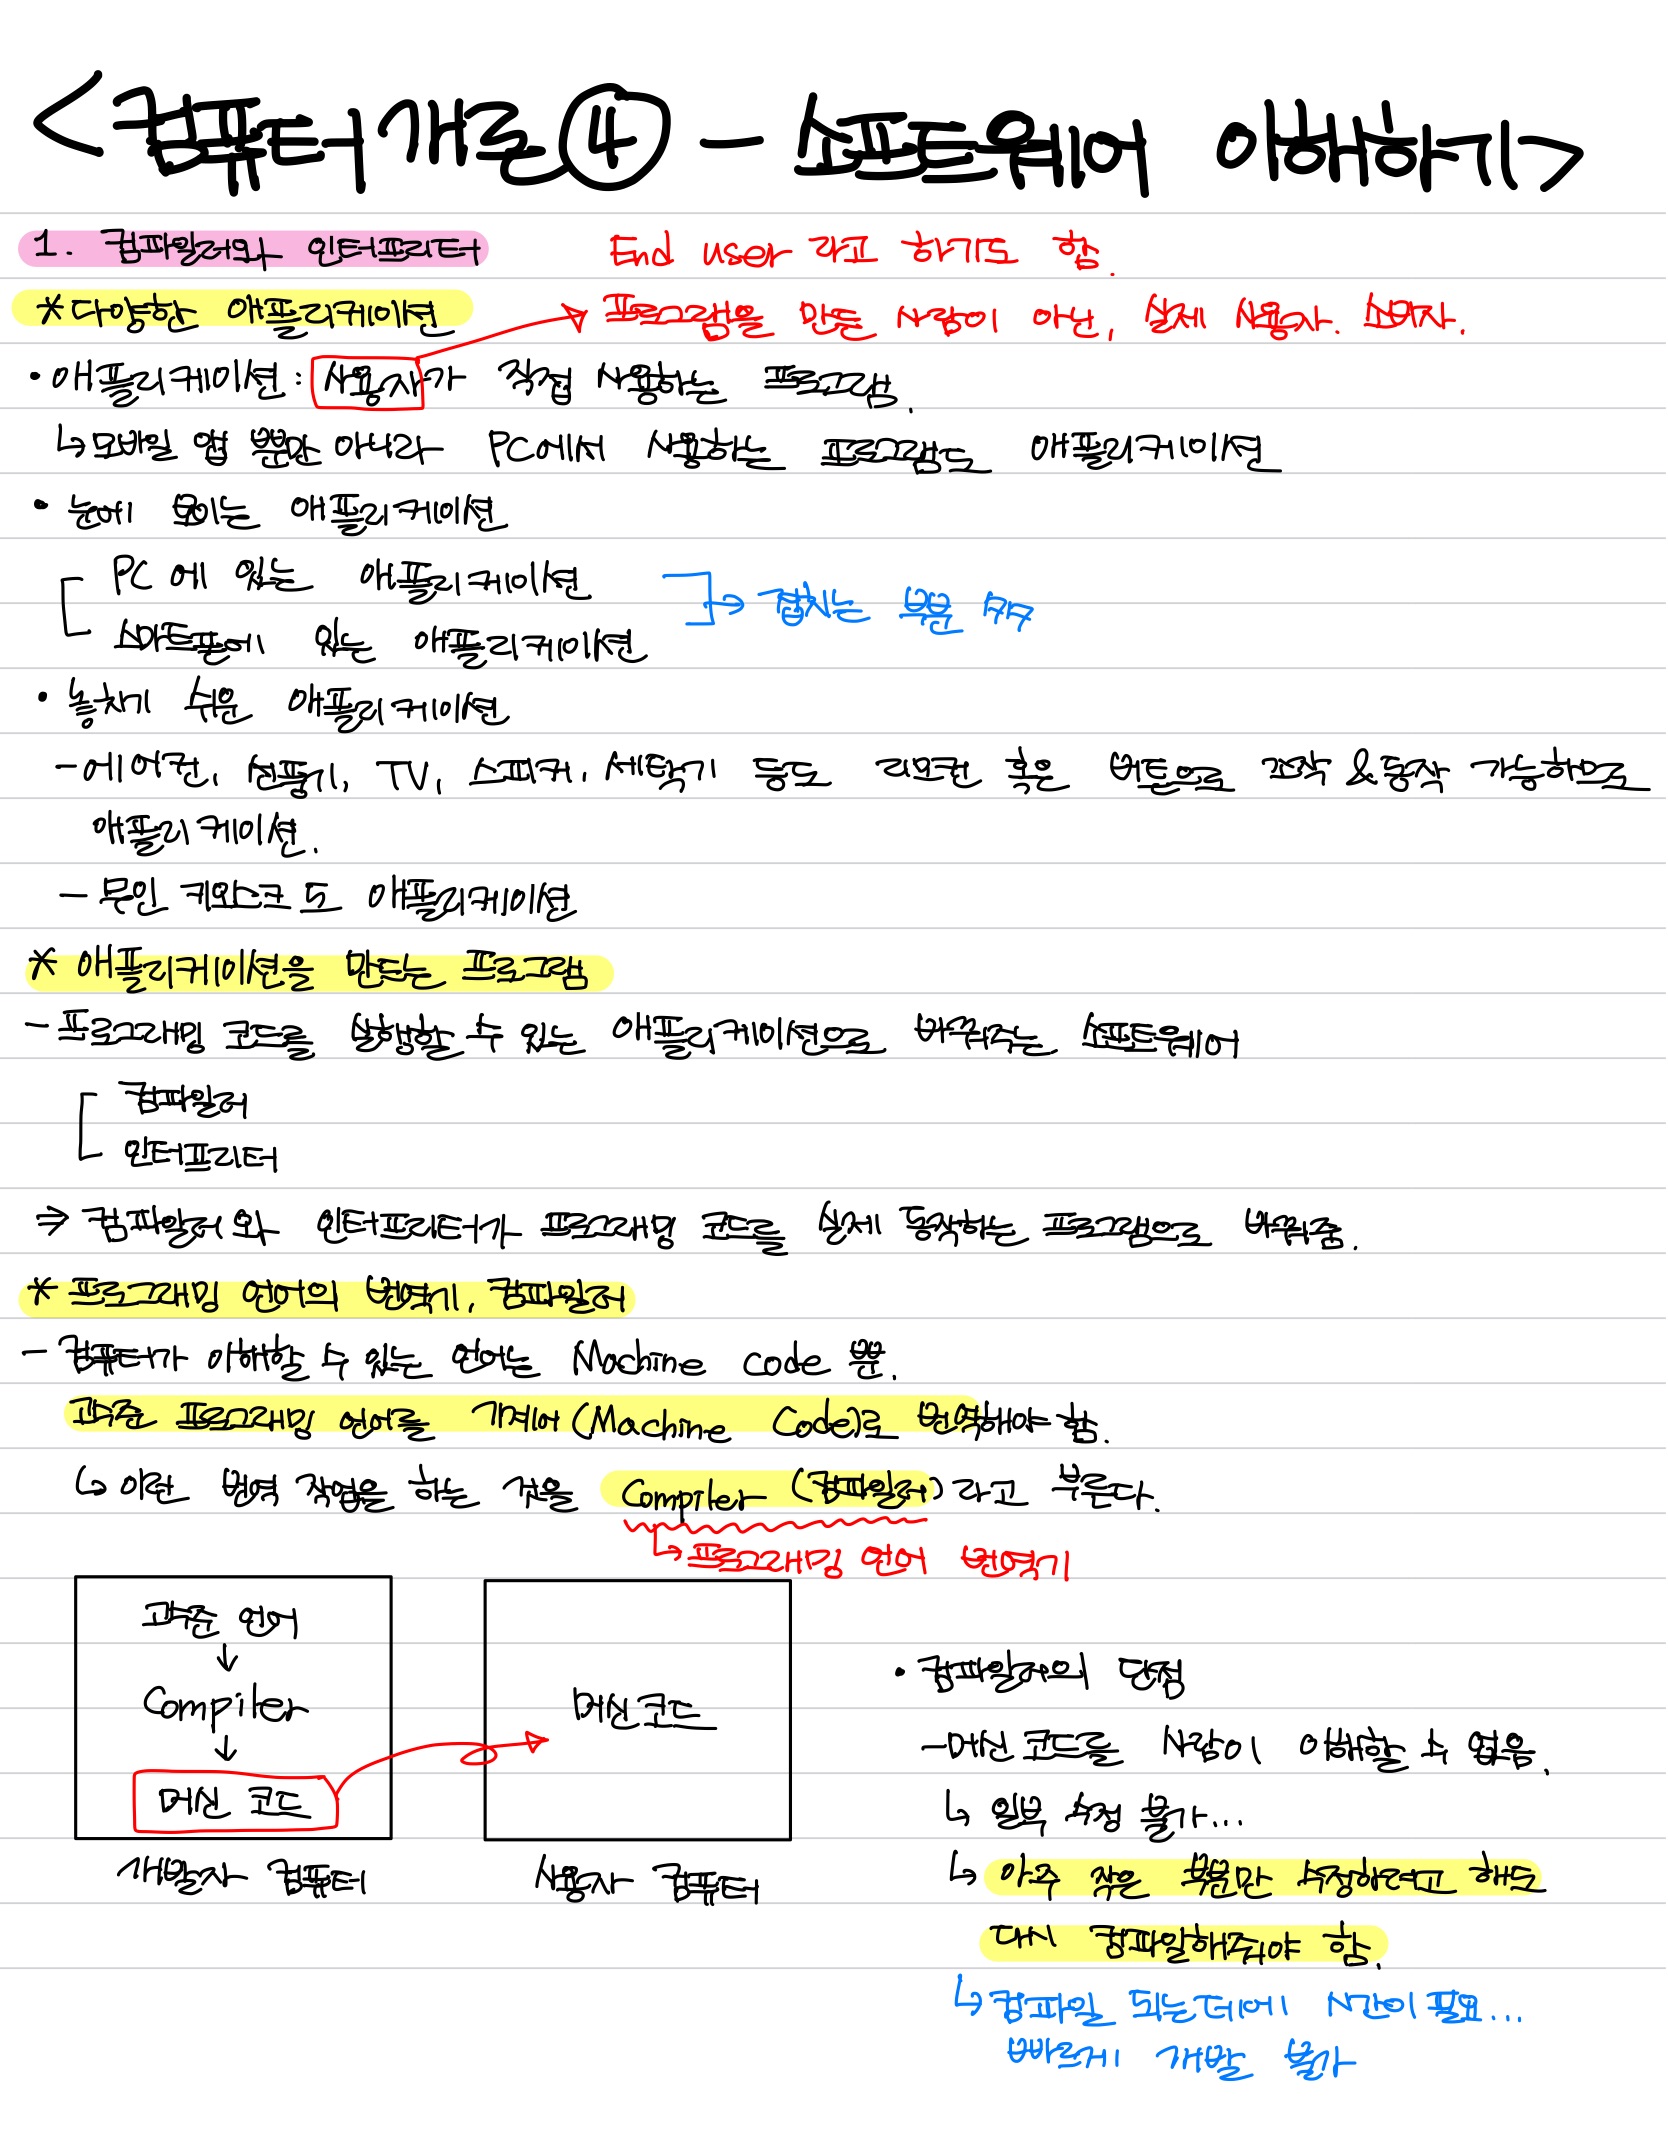 <컴퓨터개론 ④ - 소프트웨어 이해하기>
1. 컴파일러와 인터프리터
End user 라고 하기도 함.
*다양한 애플리케이션
프로그램을 만든 사람이 아닌, 실제 사용자. 소비자.
• 애플리케이션 : 사용자가 직접 사용하는 프로그램.
↳ 모바일 앱 뿐만 아니라 PC에서 사용하는 프로그램도 애플리케이션
• 눈에 보이는 애플리케이션
PC에 있는 애플리케이션
스마트폰에 있는 애플리케이션
→ 겹치는 부분 多多
• 놓치기 쉬운 애플리케이션
- 에어컨, 선풍기, TV, 스피커, 세탁기 등도 리모컨 혹은 버튼으로 조작 & 동작 가능하므로
애플리케이션.
- 무인 키오스크도 애플리케이션
* 애플리케이션을 만드는 프로그램
- 프로그래밍 코드를 실행할 수 있는 애플리케이션으로 바꿔주는 소프트웨어
컴파일러
인터프리터
⇒ 컴파일러와 인터프리터가 프로그래밍 코드를 실제 동작하는 프로그램으로 바꿔줌.
* 프로그래밍 언어의 번역기, 컴파일러
- 컴퓨터가 이해할 수 있는 언어는 Machine code 뿐.
고수준 프로그래밍 언어를 기계어(Machine Code)로 번역해야 함.
↳ 이런 번역 작업을 하는 것을 Compiler (컴파일러)라고 부른다.
↳ 프로그래밍 언어 번역기
고수준 언어
↓
Compiler
↓
머신 코드
개발자 컴퓨터
머신코드
사용자 컴퓨터
• 컴파일러의 단점
- 머신코드를 사람이 이해할 수 없음.
↳ 일부 수정 불가...
↳ 아주 작은 부분만 수정하려고 해도
다시 컴파일해줘야 함.
↳ 컴파일 되는데에 시간이 필요...
빠르게 개발 불가